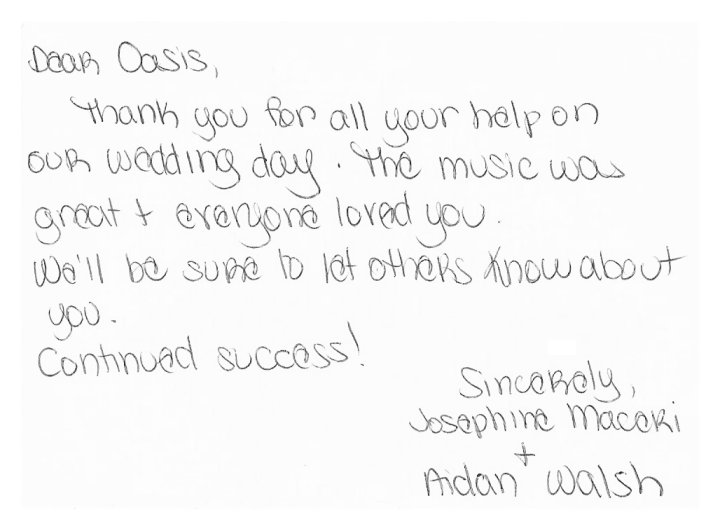 Dear Oasis,
Thank you for all your help on
our wedding day. The music was
great + everyone loved you.
We'll be sure to let others know about
you.
Continued success!
Sincerely,
Josephine Maceri
+
Aidan Walsh